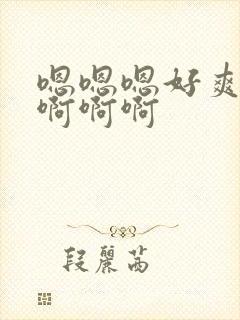 嗯嗯嗯好爽
啊啊啊
段麗茜